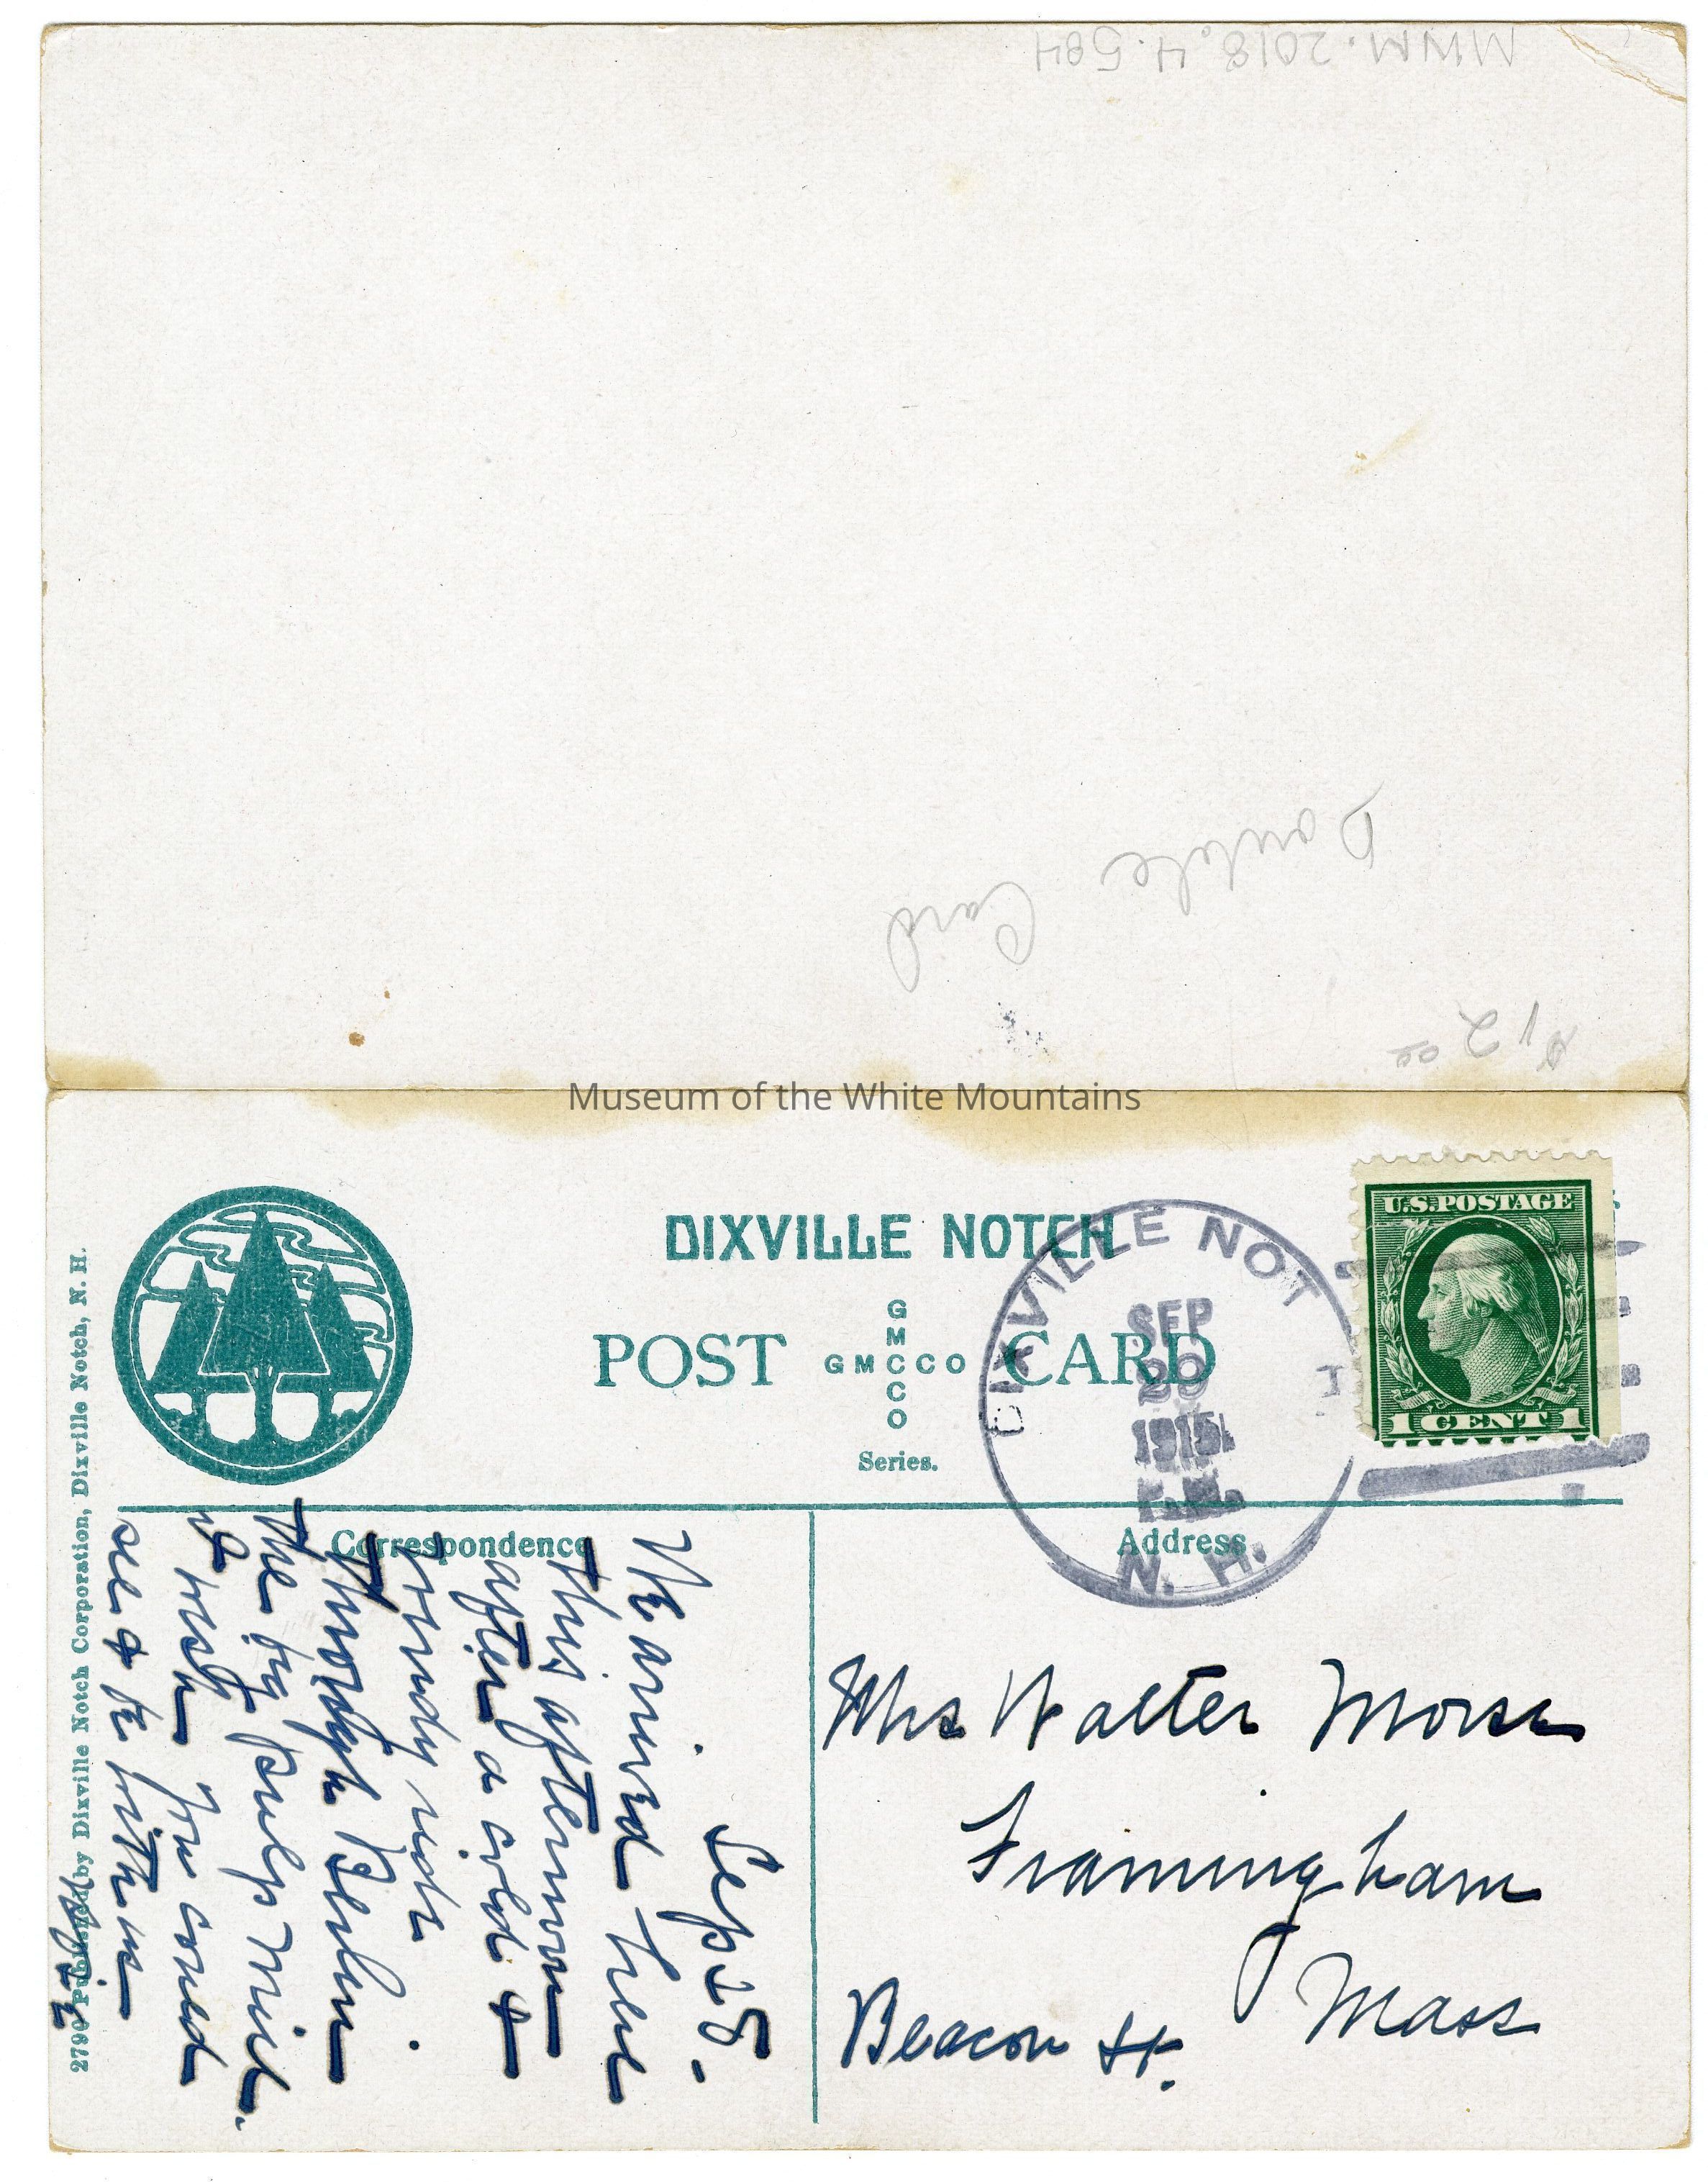 MWM.2018.4.584
Double Card
$12.00
Museum of the White Mountains
DIXVILLE NOTCH
POST CARD
GMCCO
GMCCO
Series.
DIXVILLE NOT
SEP
29
1915
N. H.
U.S. POSTAGE
1 CENT 1
Correspondence
Address
2790 Published by Dixville Notch Corporation, Dixville Notch, N. H.
Sep 28.
We arrived here
this afternoon
after a cold &
windy ride
through Berlin
the big pulp mill.
I wish you could
see & be with us
Mrs Walter Morse
Framingham
Mass
Beacon St.